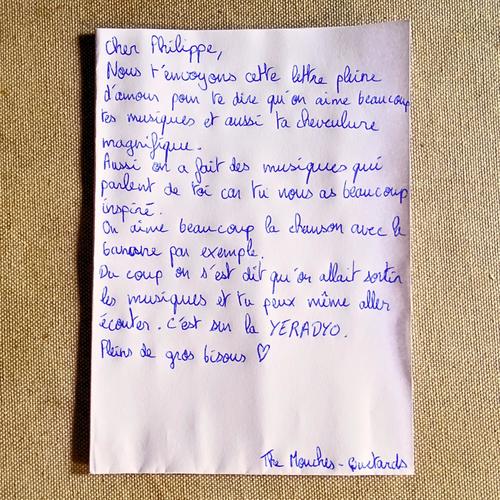 Cher Philippe,
Nous t'envoyons cette lettre pleine
d'amour pour te dire qu'on aime beaucoup
tes musiques et aussi ta chevelure
magnifique.
Aussi on a fait des musiques qui
parlent de toi car tu nous as beaucoup
inspiré.
On aime beaucoup la chanson avec la
par exemple.
Du coup on s'est dit qu'on allait sortir
les musiques et tu peux même aller
écouter. C'est sur la YERADYO.
Pleins de gros bisous ♡
The Mouches-Bustards